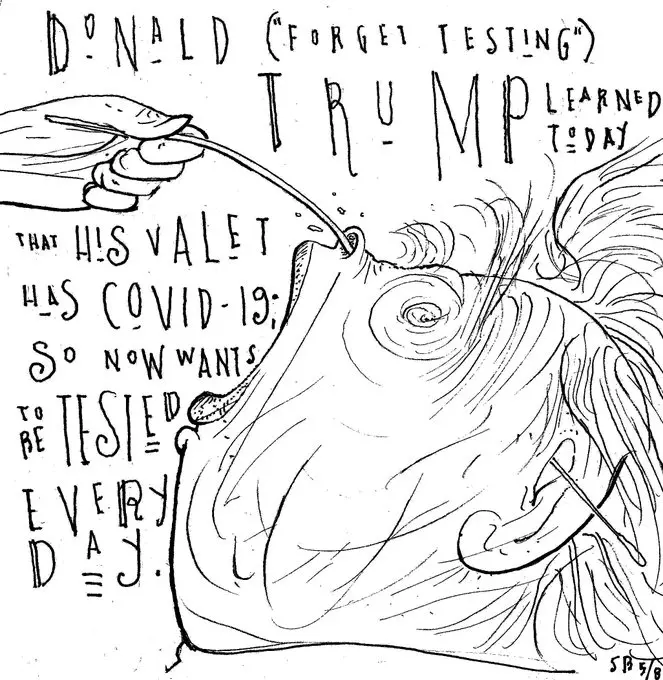 DONALD ("FORGET TESTING")
TRUMP LEARNED
TODAY
THAT HIS VALET
HAS COVID-19;
SO NOW WANTS
TO BE TESTED
EVERY
DAY.
SB 5/8